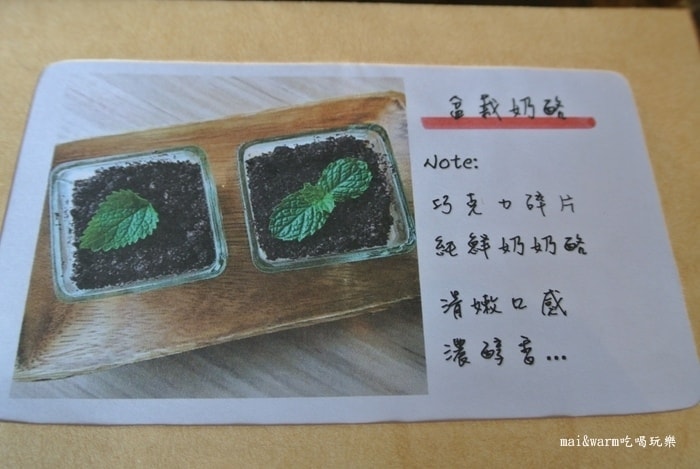 盆栽奶酪
Note:
巧克力碎片
純鮮奶奶酪
滑嫩口感
濃醇香...
mai&warm吃喝玩樂